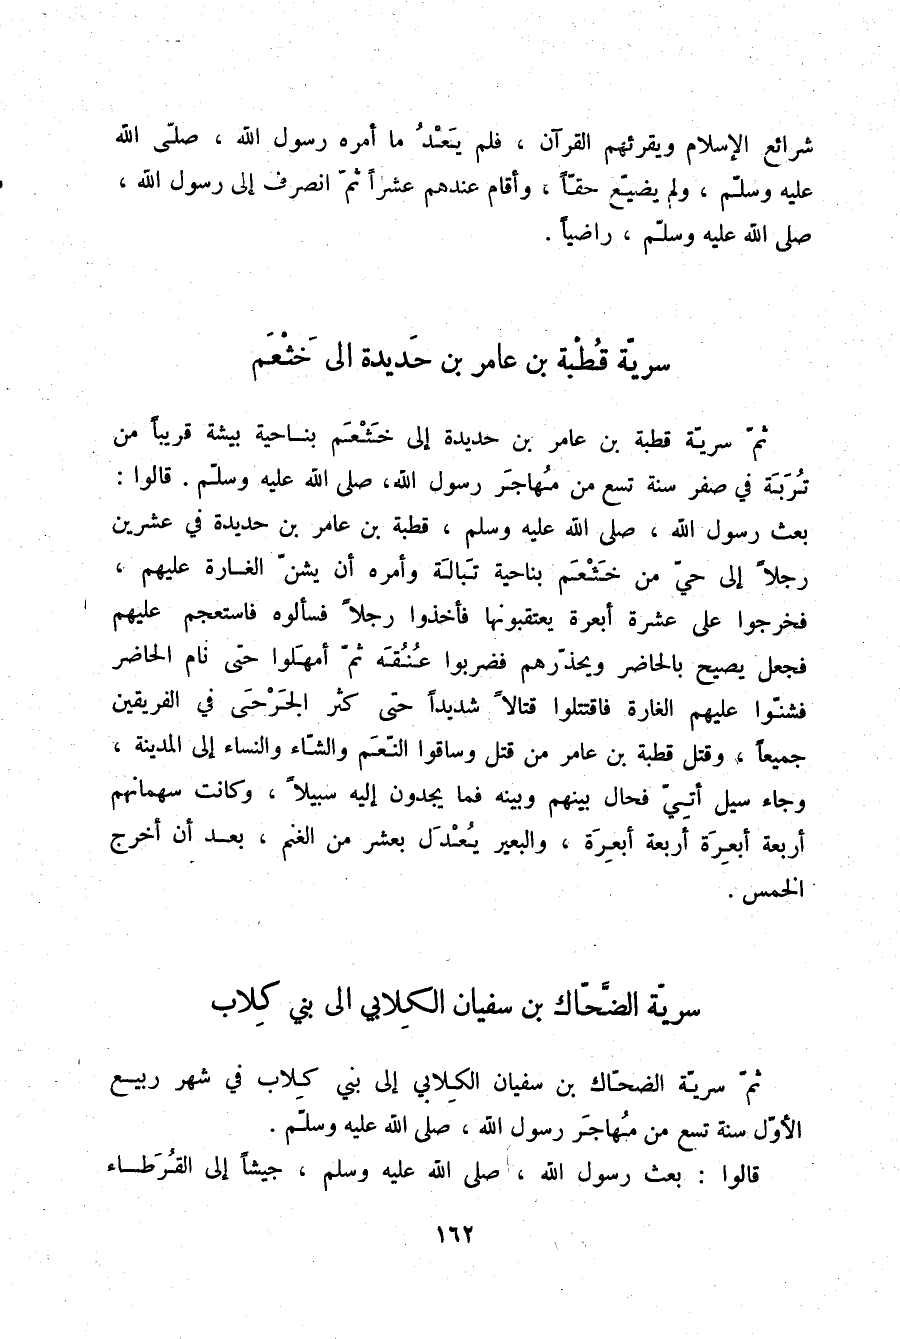 شرائع الإسلام ويقرئهم القرآن ، فلم يَعْدُ ما أمره رسول الله ، صلّى الله
عليه وسلّم ، ولم يضيّع حقّاً ، وأقام عندهم عشراً ثمّ انصرف إلى رسول الله ،
صلى الله عليه وسلّم ، راضياً .
سريّة قُطْبة بن عامر بن حَديدة الى خَثْعَم
ثمّ سريّة قطبة بن عامر بن حديدة إلى خَثْعَم بناحية بيشة قريباً من
تُرَبَة في صفر سنة تسع من مُهاجَر رسول الله، صلى الله عليه وسلّم . قالوا :
بعث رسول الله ، صلى الله عليه وسلم ، قطبة بن عامر بن حديدة في عشرين
رجلاً إلى حيّ من خَثْعَم بناحية تَبالَة وأمره أن يشنّ الغارة عليهم ،
فخرجوا على عشرة أبعرة يعتقبونها فأخذوا رجلاً فسألوه فاستعجم عليهم
فجعل يصيح بالحاضر ويحذّرهم فضربوا عُنُقَه ثمّ أمهَلوا حتى نام الحاضر
فشنّوا عليهم الغارة فاقتتلوا قتالاً شديداً حتى كثر الجَرْحَى في الفريقين
جميعاً ، وقتل قطبة بن عامر من قتل وساقوا النّعَم والشّاء والنساء إلى المدينة ،
وجاء سيل أتِيّ فحال بينهم وبينه فما يجدون إليه سبيلاً ، وكانت سهمانهم
أربعة أبعِرَة أربعة أبعِرَة ، والبعير يُعْدَل بعشر من الغنم ، بعد أن أخرج
الخمس .
سريّة الضَّحّاك بن سفيان الكِلابي الى بني كِلاب
ثمّ سريّة الضحّاك بن سفيان الكِلابي إلى بني كِلاب في شهر ربيع
الأوّل سنة تسع من مُهاجَر رسول الله ، صلى الله عليه وسلّم .
قالوا : بعث رسول الله ، صلى الله عليه وسلم ، جيشاً إلى القُرَطاء
١٦٢